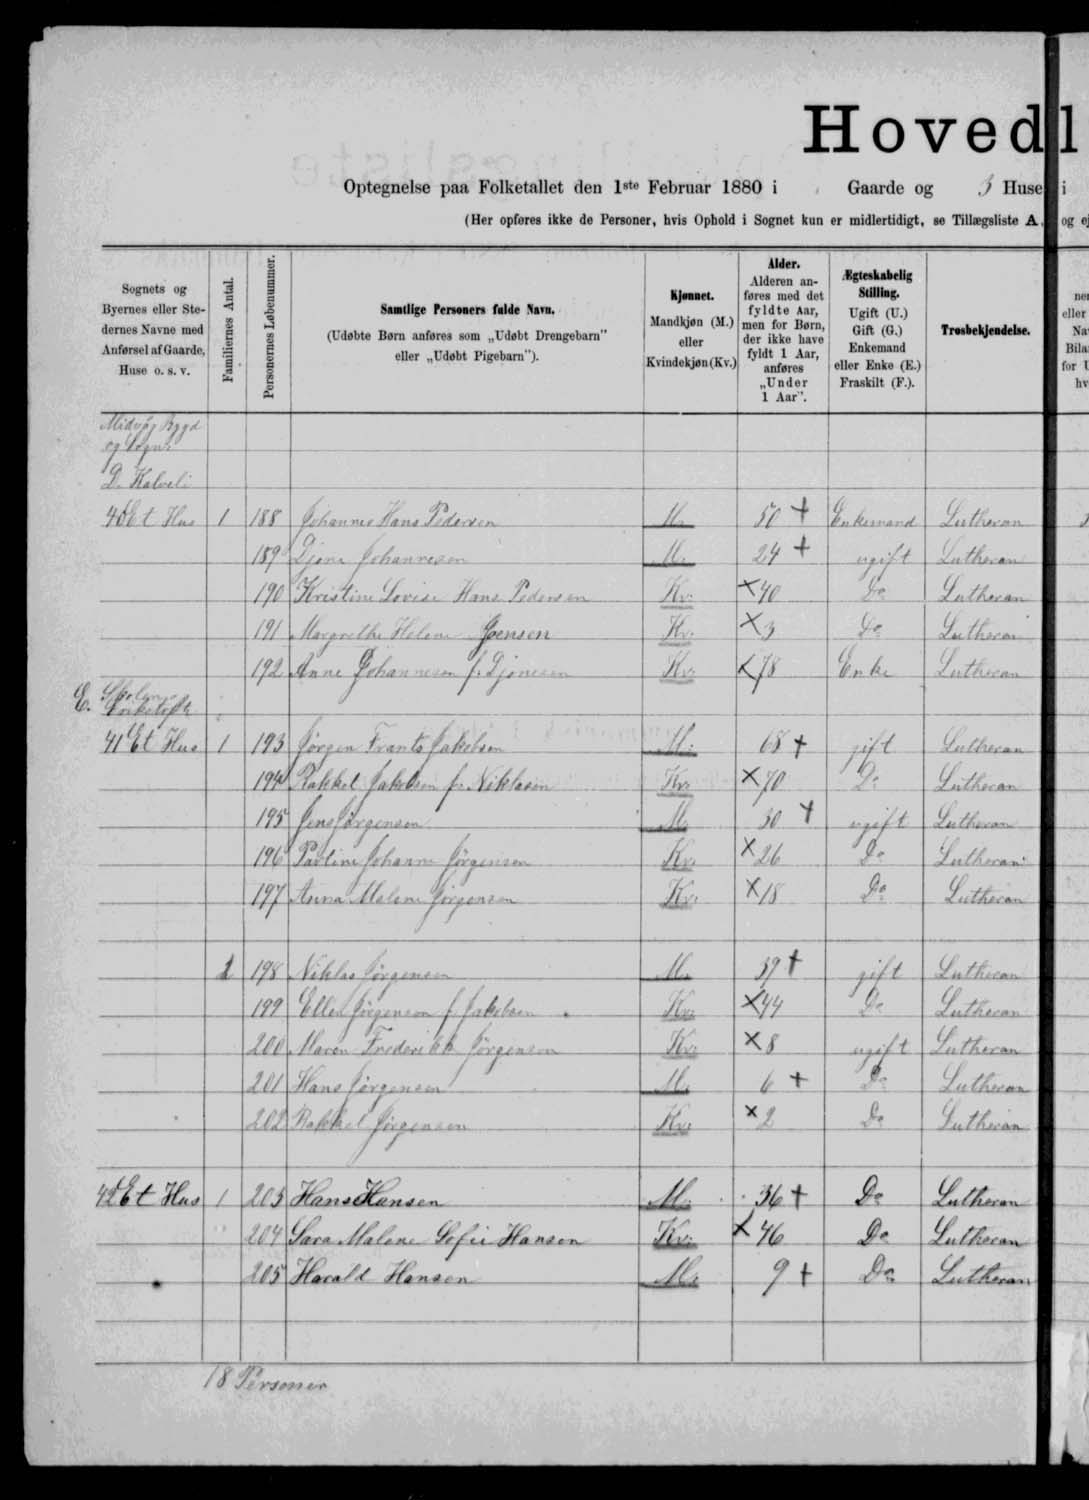 Hovedl
Optegnelse paa Folketallet den 1ste Februar 1880 i Gaarde og 3 Huse i
(Her opføres ikke de Personer, hvis Ophold i Sognet kun er midlertidigt, se Tillægsliste A, og ej
Sognets og Byernes eller Stedernes Navne med Anførsel af Gaarde, Huse o. s. v.
Familiernes Antal.
Personernes Løbenummer.
Samtlige Personers fulde Navn.
(Udøbte Børn anføres som „Udøbt Drengebarn" eller „Udøbt Pigebarn").
Kjønnet.
Mandkjøn (M.) eller Kvindekjøn (Kv.)
Alder.
Alderen anføres med det fyldte Aar, men for Børn, der ikke have fyldt 1 Aar, anføres „Under 1 Aar".
Ægteskabelig Stilling.
Ugift (U.) Gift (G.) Enkemand eller Enke (E.) Fraskilt (F.).
Trosbekjendelse.
Midvåg Bygd
og Sogn
D. Kalveli
40 Et Hus 1 188 Johannes Hans Pedersen M. 50 + Enkemand Lutheran
189 Djone Johannesen M. 24 + ugift Lutheran
190 Kristine Lovise Hans Pedersen Kv. × 40 Do Lutheran
191 Margrethe Helene Joensen Kv. × 3 Do Lutheran
192 Anne Johannesen f. Djonesen Kv. × 78 Enke Lutheran
E.
41 Et Hus 1 193 Jørgen Frants Jakobsen M. 68 + gift Lutheran
194 Rakkel Jakobsen f. Niklasen Kv. × 70 Do Lutheran
195 Jens Jørgensen M. 30 + ugift Lutheran
196 Pauline Johanne Jørgensen Kv. × 26 Do Lutheran
197 Anna Malene Jørgensen Kv. × 18 Do Lutheran
2 198 Niklas Jørgensen M. 39 + gift Lutheran
199 Ellen Jørgensen f. Jakobsen Kv. × 44 Do Lutheran
200 Maren Frederikke Jørgensen Kv. × 8 ugift Lutheran
201 Hans Jørgensen M. 6 + Do Lutheran
202 Rakkel Jørgensen Kv. × 2 Do Lutheran
42 Et Hus 1 203 Hans Hansen M. 36 + Do Lutheran
204 Sara Malene Sofie Hansen Kv. × 46 Do Lutheran
205 Harald Hansen M. 9 + Do Lutheran
18 Personer